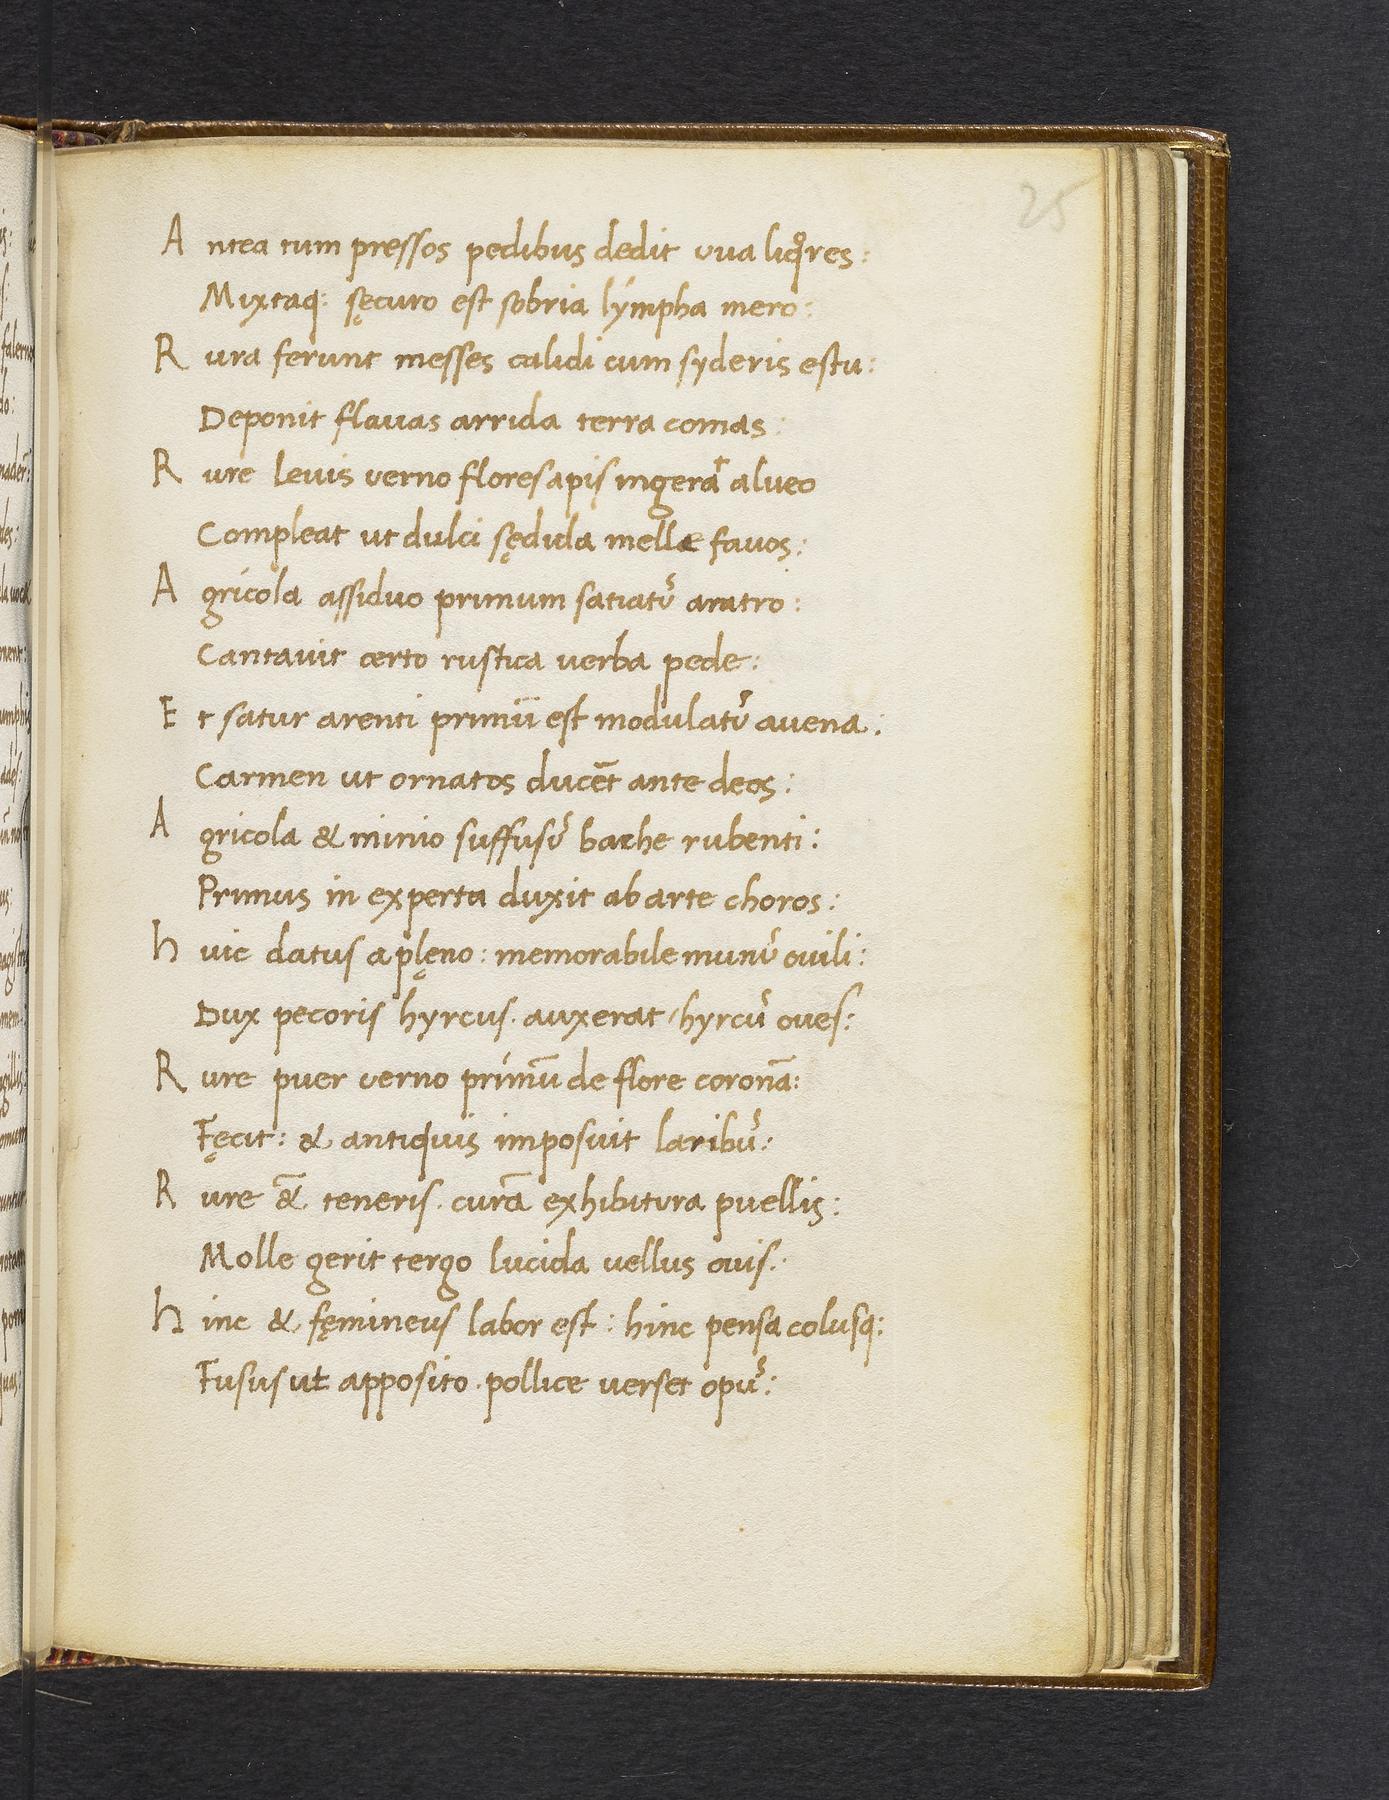 25
A ntea tum pressos pedibus dedit vua liqores:
Mixtaq: sęcuro est sobria lýmpha mero:
R ura ferunt messes calidi cum syderis estu:
Deponit flauas arrida terra comas:
R ure leuis verno flores apis ingerat alueo
Compleat ut dulci sędula melle fauos:
A grícola assiduo primum satiatꝰ aratro:
Cantauit certo rustica verba pede:
E t satur arenti primū est modulatꝰ auena:
Carmen ut ornatos ducēt ante deos:
A gricola & minio suffusꝰ bache rubenti:
Primus in experta duxit ab arte choros:
h uic datus a plęno: memorabile munꝰ ouili:
Dux pecoris hyrcus. auxerat hyrcꝰ oues:
R ure puer verno prímū de flore coronā:
Fęcit: & antiquis imposuit laribꝰ:
R ure &̄ teneris. curā exhibitura puellis:
Molle gerit tergo lucida vellus ouis:
h inc & fęmineus labor est: hinc pensa colusq:
Fusus ut apposito. pollice verset opꝰ: